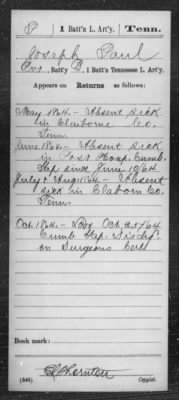 P | 1 Batt'n L. Art'y. | Tenn.
Joseph Paul
Pvt, Batt'y B, 1 Batt'n Tennessee L. Art'y.
Appears on Returns as follows:
May 1864.- Absent sick
in Claiborne Co.
Tenn.
June 1864.- Absent sick
in Post Hosp. Cumb.
Gap since June 10/64
July & Aug 1864 - Absent
sick in Claborn Co.
Tenn.
Oct. 1864.- Oct. 25/64
Cumb Gap. Disch'g'd
on Surgeons Cert.
Book mark:
(546)
Thornton
Copyist.